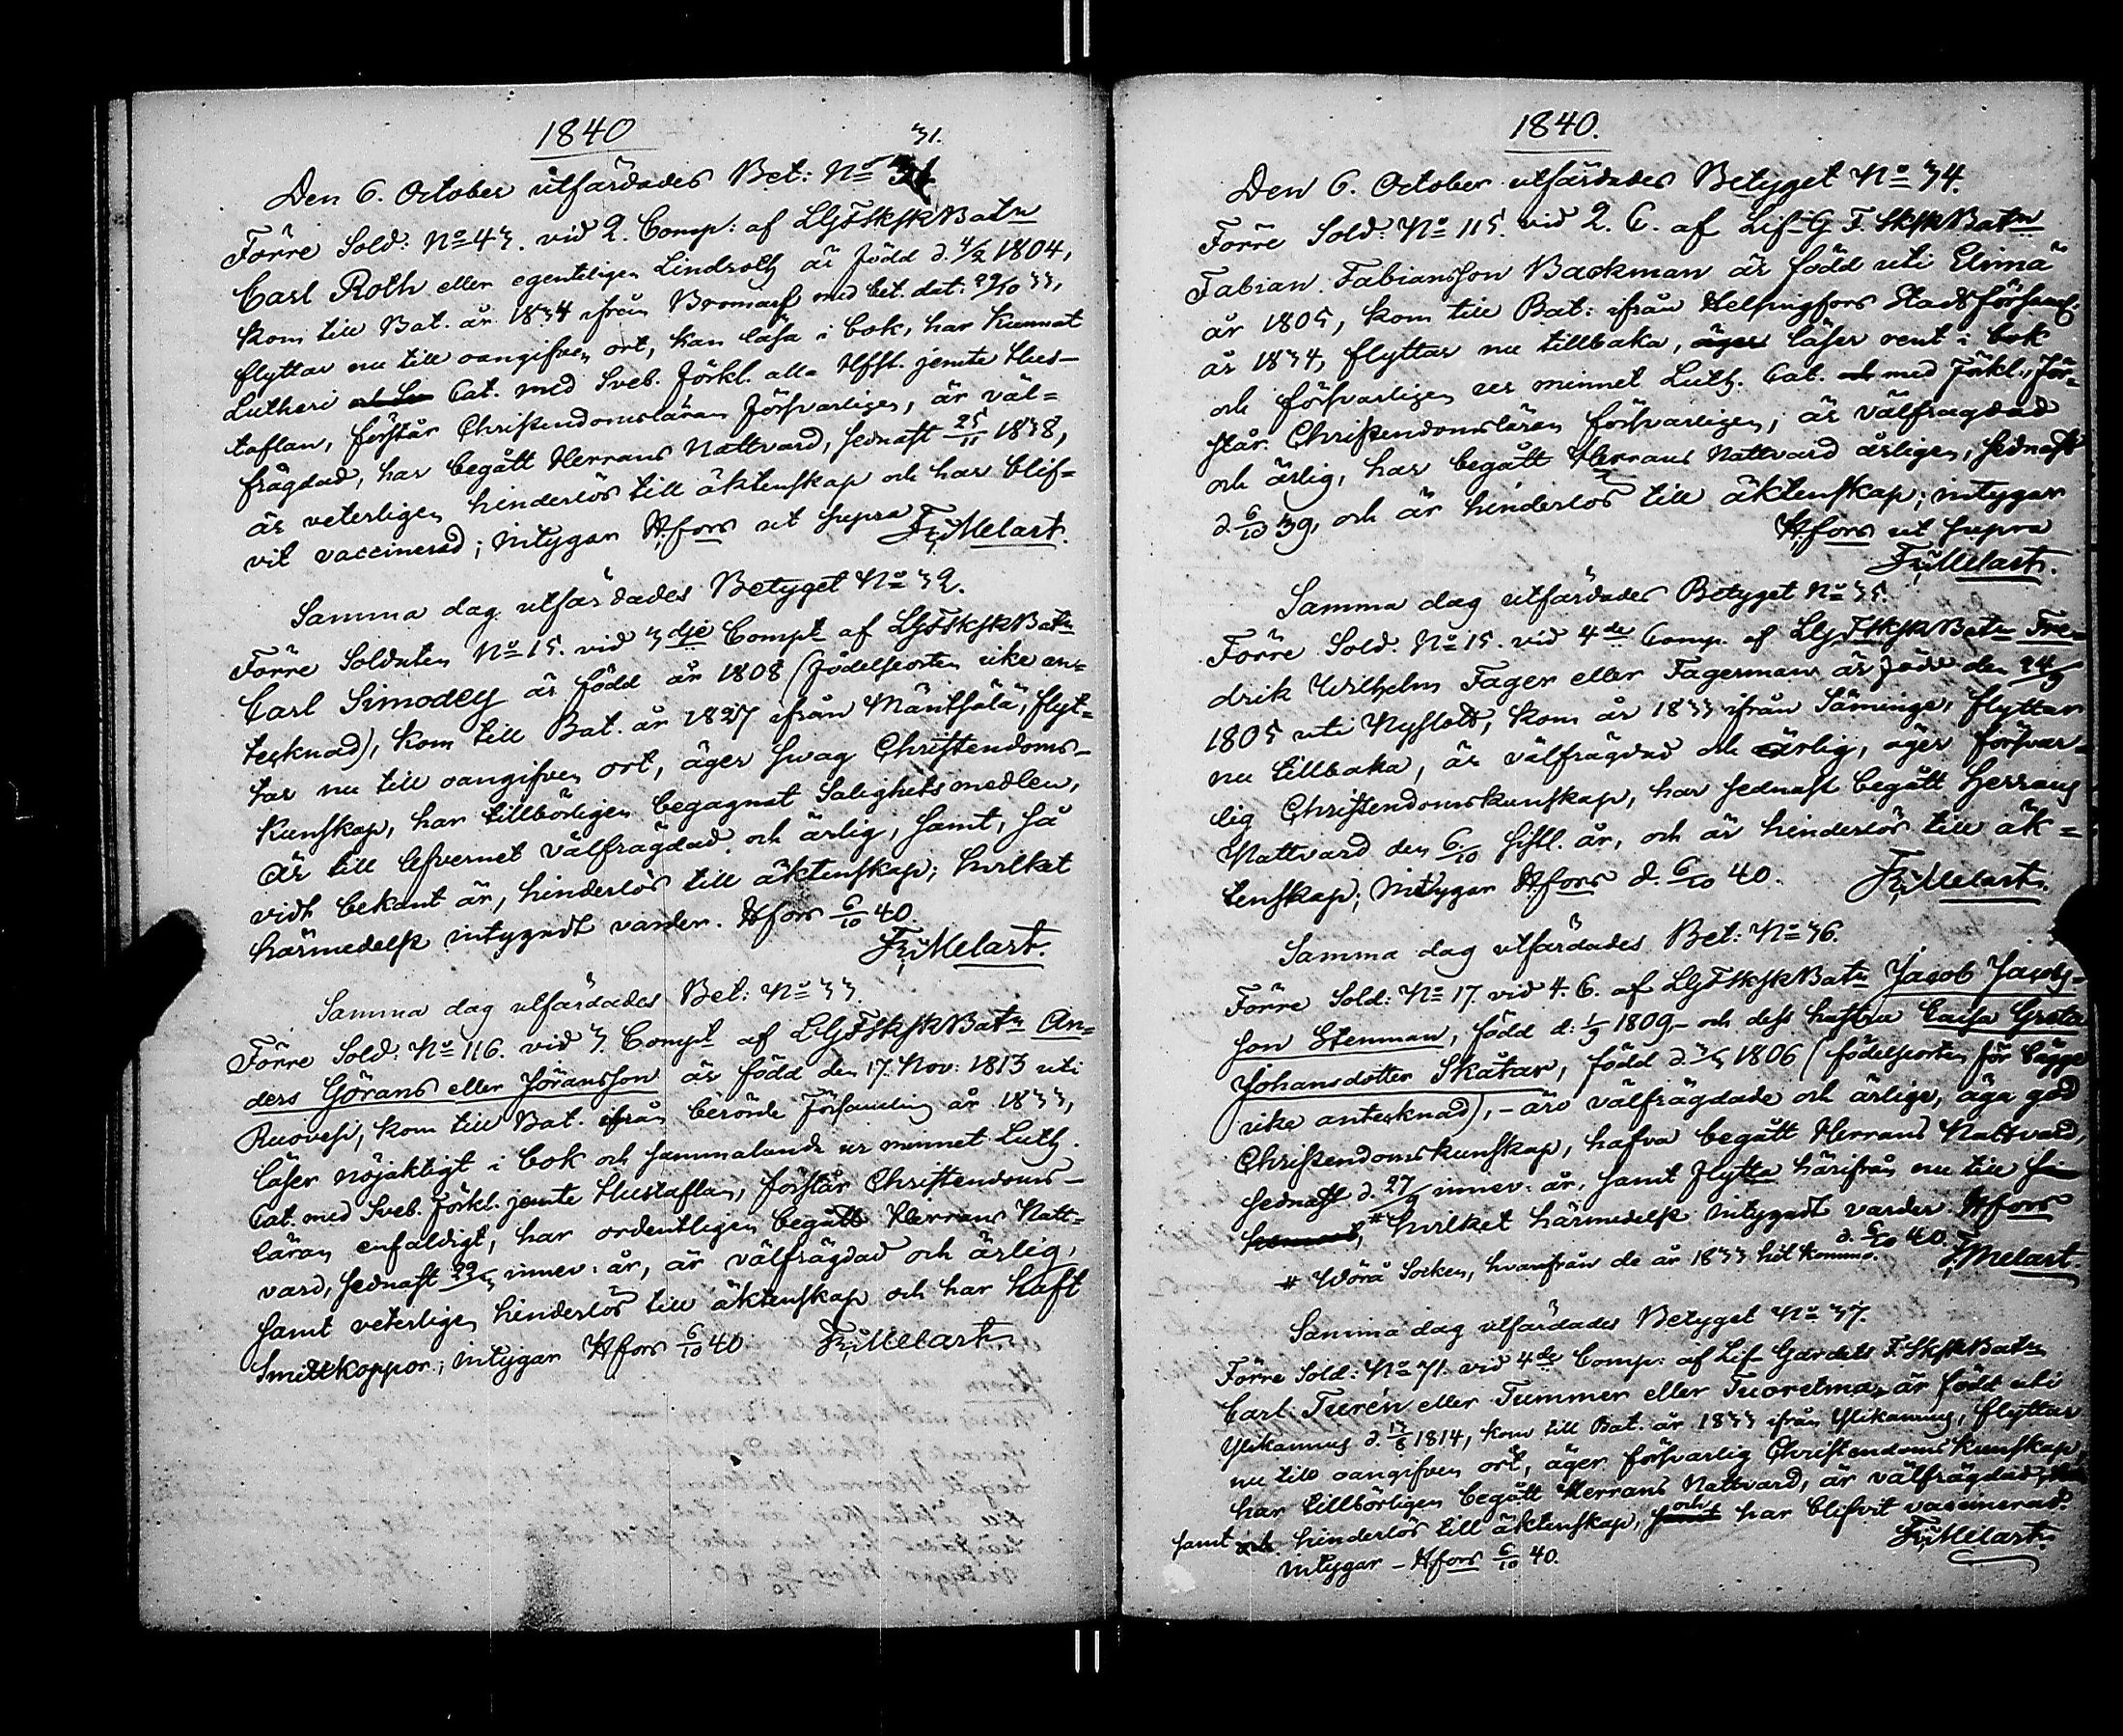 1840
31.
Den 6. October utfärdades Bet: No 31
Förre Sold: No 43. vid 2. Comp: af LGFSkskBatn
Carl Roth eller egenteligen Lindroth är född d. 4/2 1804,
kom till Bat. år 1834 ifrån Bromarf med bet. dat: 29/10 33,
flyttar nu till oangifven ort, kan läsa i bok, har kunnat
Lutheri Cat. med Sveb. förkl. alla Hfst. jemte Hus-
taflan, förstår Christendomsläran försvarligen, är väl=
frägdad, har begått Herrans Nattvard, sednast 25/11 1838,
är veterligen hinderlös till äktenskap och har blif=
vit vaccinerad; intygar Hfors ut supra
Fr: Melart.
Samma dag utfärdades Betyget No 32.
Förre Soldaten No 15. vid 3dje Compt af LGFSkskBatn
Carl Simodey är född år 1808 (födelseorten icke an=
tecknad), kom till Bat. år 1827 ifrån Mäntsälä, flyt=
tar nu till oangifven ort, äger swag Christendoms-
kunskap, har tillbörligen begagnat Salighetsmedlen,
är till lefvernet välfrägdad och ärlig, samt, så
vidt bekant är, hinderlös till äktenskap; hvilket
härmedelst intygadt varder. Hfors 6/10 40.
Fr: Melart.
Samma dag utfärdades Bet: No 33.
Förre Sold: No 116. vid 3. Compt af LGFSkskBatn An=
ders Görans eller Jöransson är född den 17. Nov: 1813 uti
Ruovesi, kom till Bat. ifrån berörde församling år 1833,
läser nöjaktigt i bok och sammalunda ur minnet Luth.
Cat. med Sveb. förkl. jemte Hustaflan, förstår Christendoms-
läran enfaldigt, har ordentligen begått Herrans Natt=
vard, sednast 29/3 innev: år, är välfrägdad och ärlig,
samt veterligen hinderlös till äktenskap och har haft
Smittkoppor; intygar Hfors 6/10 40. Fr: Melart.
1840.
Den 6. October utfärdades Betyget No 34.
Förre Sold: No 115. vid 2. C. af Lif-G. F. SkskBatn
Fabian Fabiansson Backman är född uti Elimä
år 1805, kom till Bat: ifrån Helsingfors Stadsförsaml:
år 1834, flyttar nu tillbaka, äger läser rent i bok
och försvarligen ur minnet Luth. Cat. med förkl., för=
står Christendomsläran försvarligen, är välfrägdad
och ärlig, har begått Herrans Nattvard årligen, sednast
d. 6/10 39, och är hinderlös till äktenskap; intygar
Hfors ut supra
Fr: Melart.
Samma dag utfärdades Betyget No 35.
Förre Sold: No 15. vid 4de Comp. af LGFSkskBatn Fre=
drik Wilhelm Fager eller Fagerman är född den 24/5
1805 uti Nyslott, kom år 1833 ifrån Säminge, flyttar
nu tillbaka, är välfrägdad och ärlig, äger försvar=
lig Christendomskunskap, har sednast begått Herrans
Nattvard den 6/10 sistl. år, och är hinderlös till äk=
tenskap; intygar Hfors d. 6/10 40. Fr: Melart.
Samma dag utfärdades Bet: No 36.
Förre Sold: No 17. vid 4. C. af LGFSkskBatn Jacob Jacobs-
son Stenman, född d: 1/9 1809, och dess hustru Caisa Greta
Johansdotter Skatar, född d. 3/5 1806 (födelseorten för bägge
icke antecknad), - äro välfrägdade och ärlige, äga god
Christendomskunskap, hafva begått Herrans Nattvard,
sednast d. 27/9 innev: år, samt flytta härifrån nu till
# hvilket härmedelst intygadt varder. Hfors
d. 6/10 40.
# Wörå Socken, hvarifrån de år 1833 hit kommo. F. Melart.
Samma dag utfärdades Betyget No 37.
Förre Sold: No 71. vid 4de Comp: af Lif-Gardets F. SkskBatn
Carl Turén eller Tummer eller Tuorelma är född uti
Ylikannus d. 13/8 1814, kom till Bat. år 1833 ifrån Ylikannus, flyttar
nu till oangifven ort, äger försvarlig Christendomskunskap,
har tillbörligen begått Herrans Nattvard, är välfrägdad,
samt hinderlös till äktenskap, och har blifvit vaccinerad.
intygar - Hfors 6/10 40.
Fr: Melart.